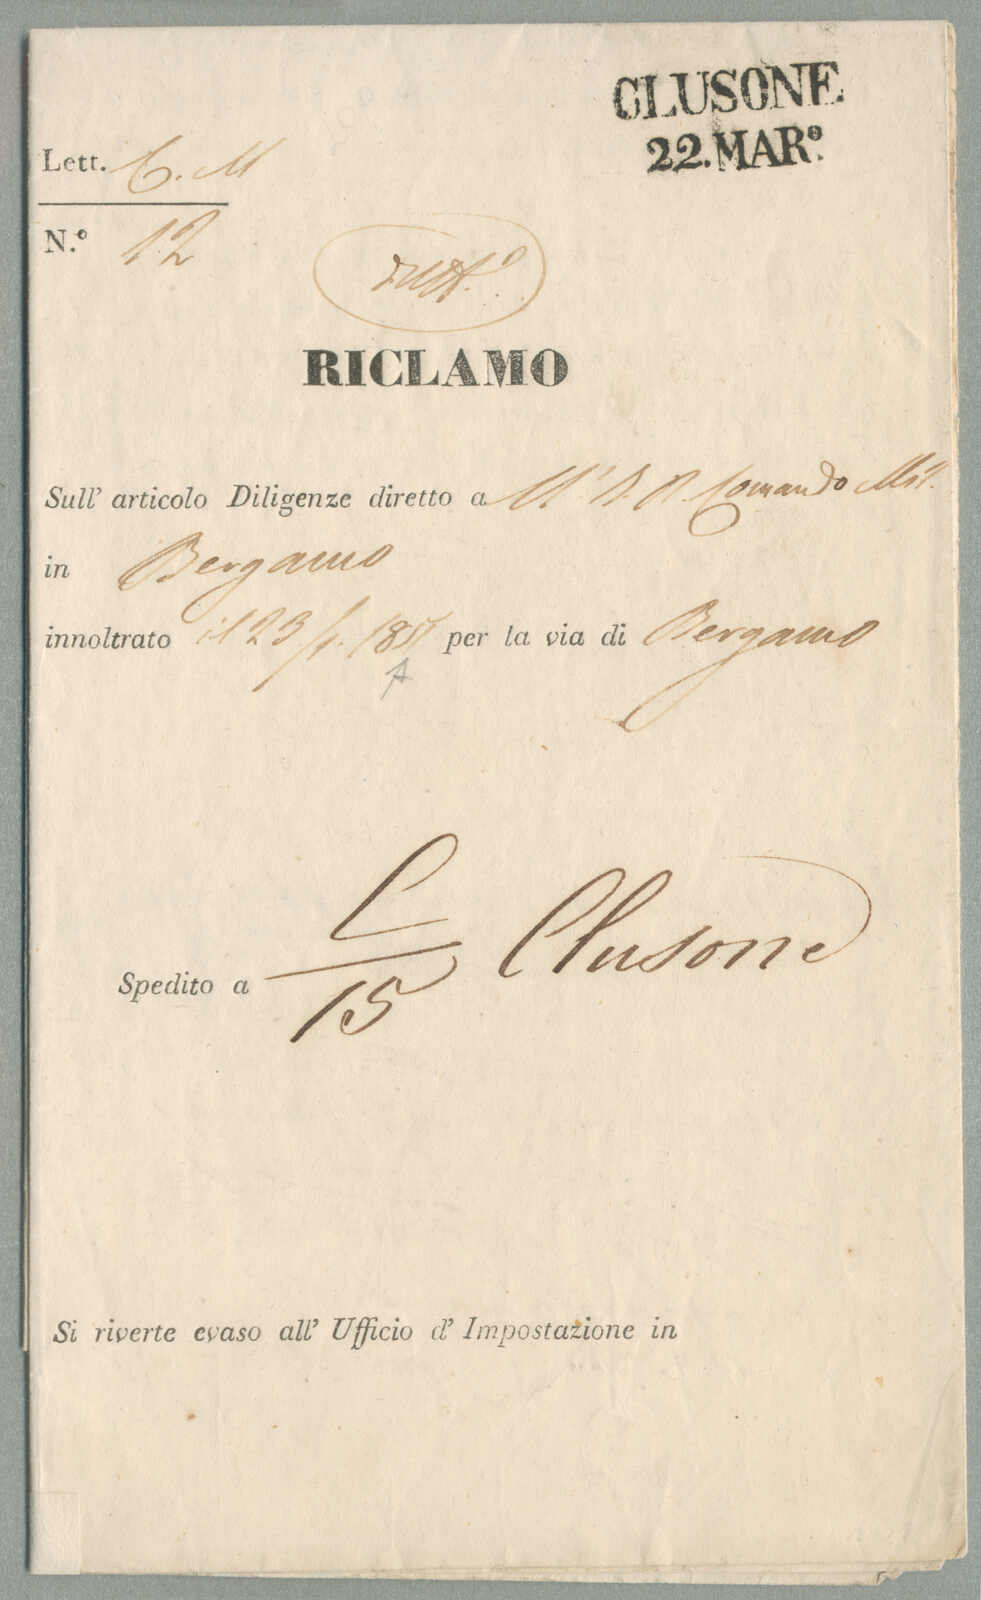 CLUSONE
22.MARº.
Lett. C. M
N.º 12
RICLAMO
Sull' articolo Diligenze diretto a All' I. R. Comando Mil.
in Bergamo
innoltrato il 23/1. per la via di Bergamo
L
Spedito a Clusone
15
Si riverte evaso all' Ufficio d' Impostazione in